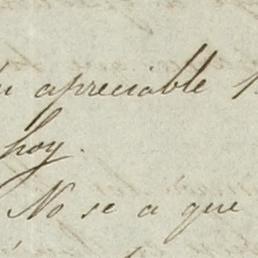 apreciable
hoy.
No se a que